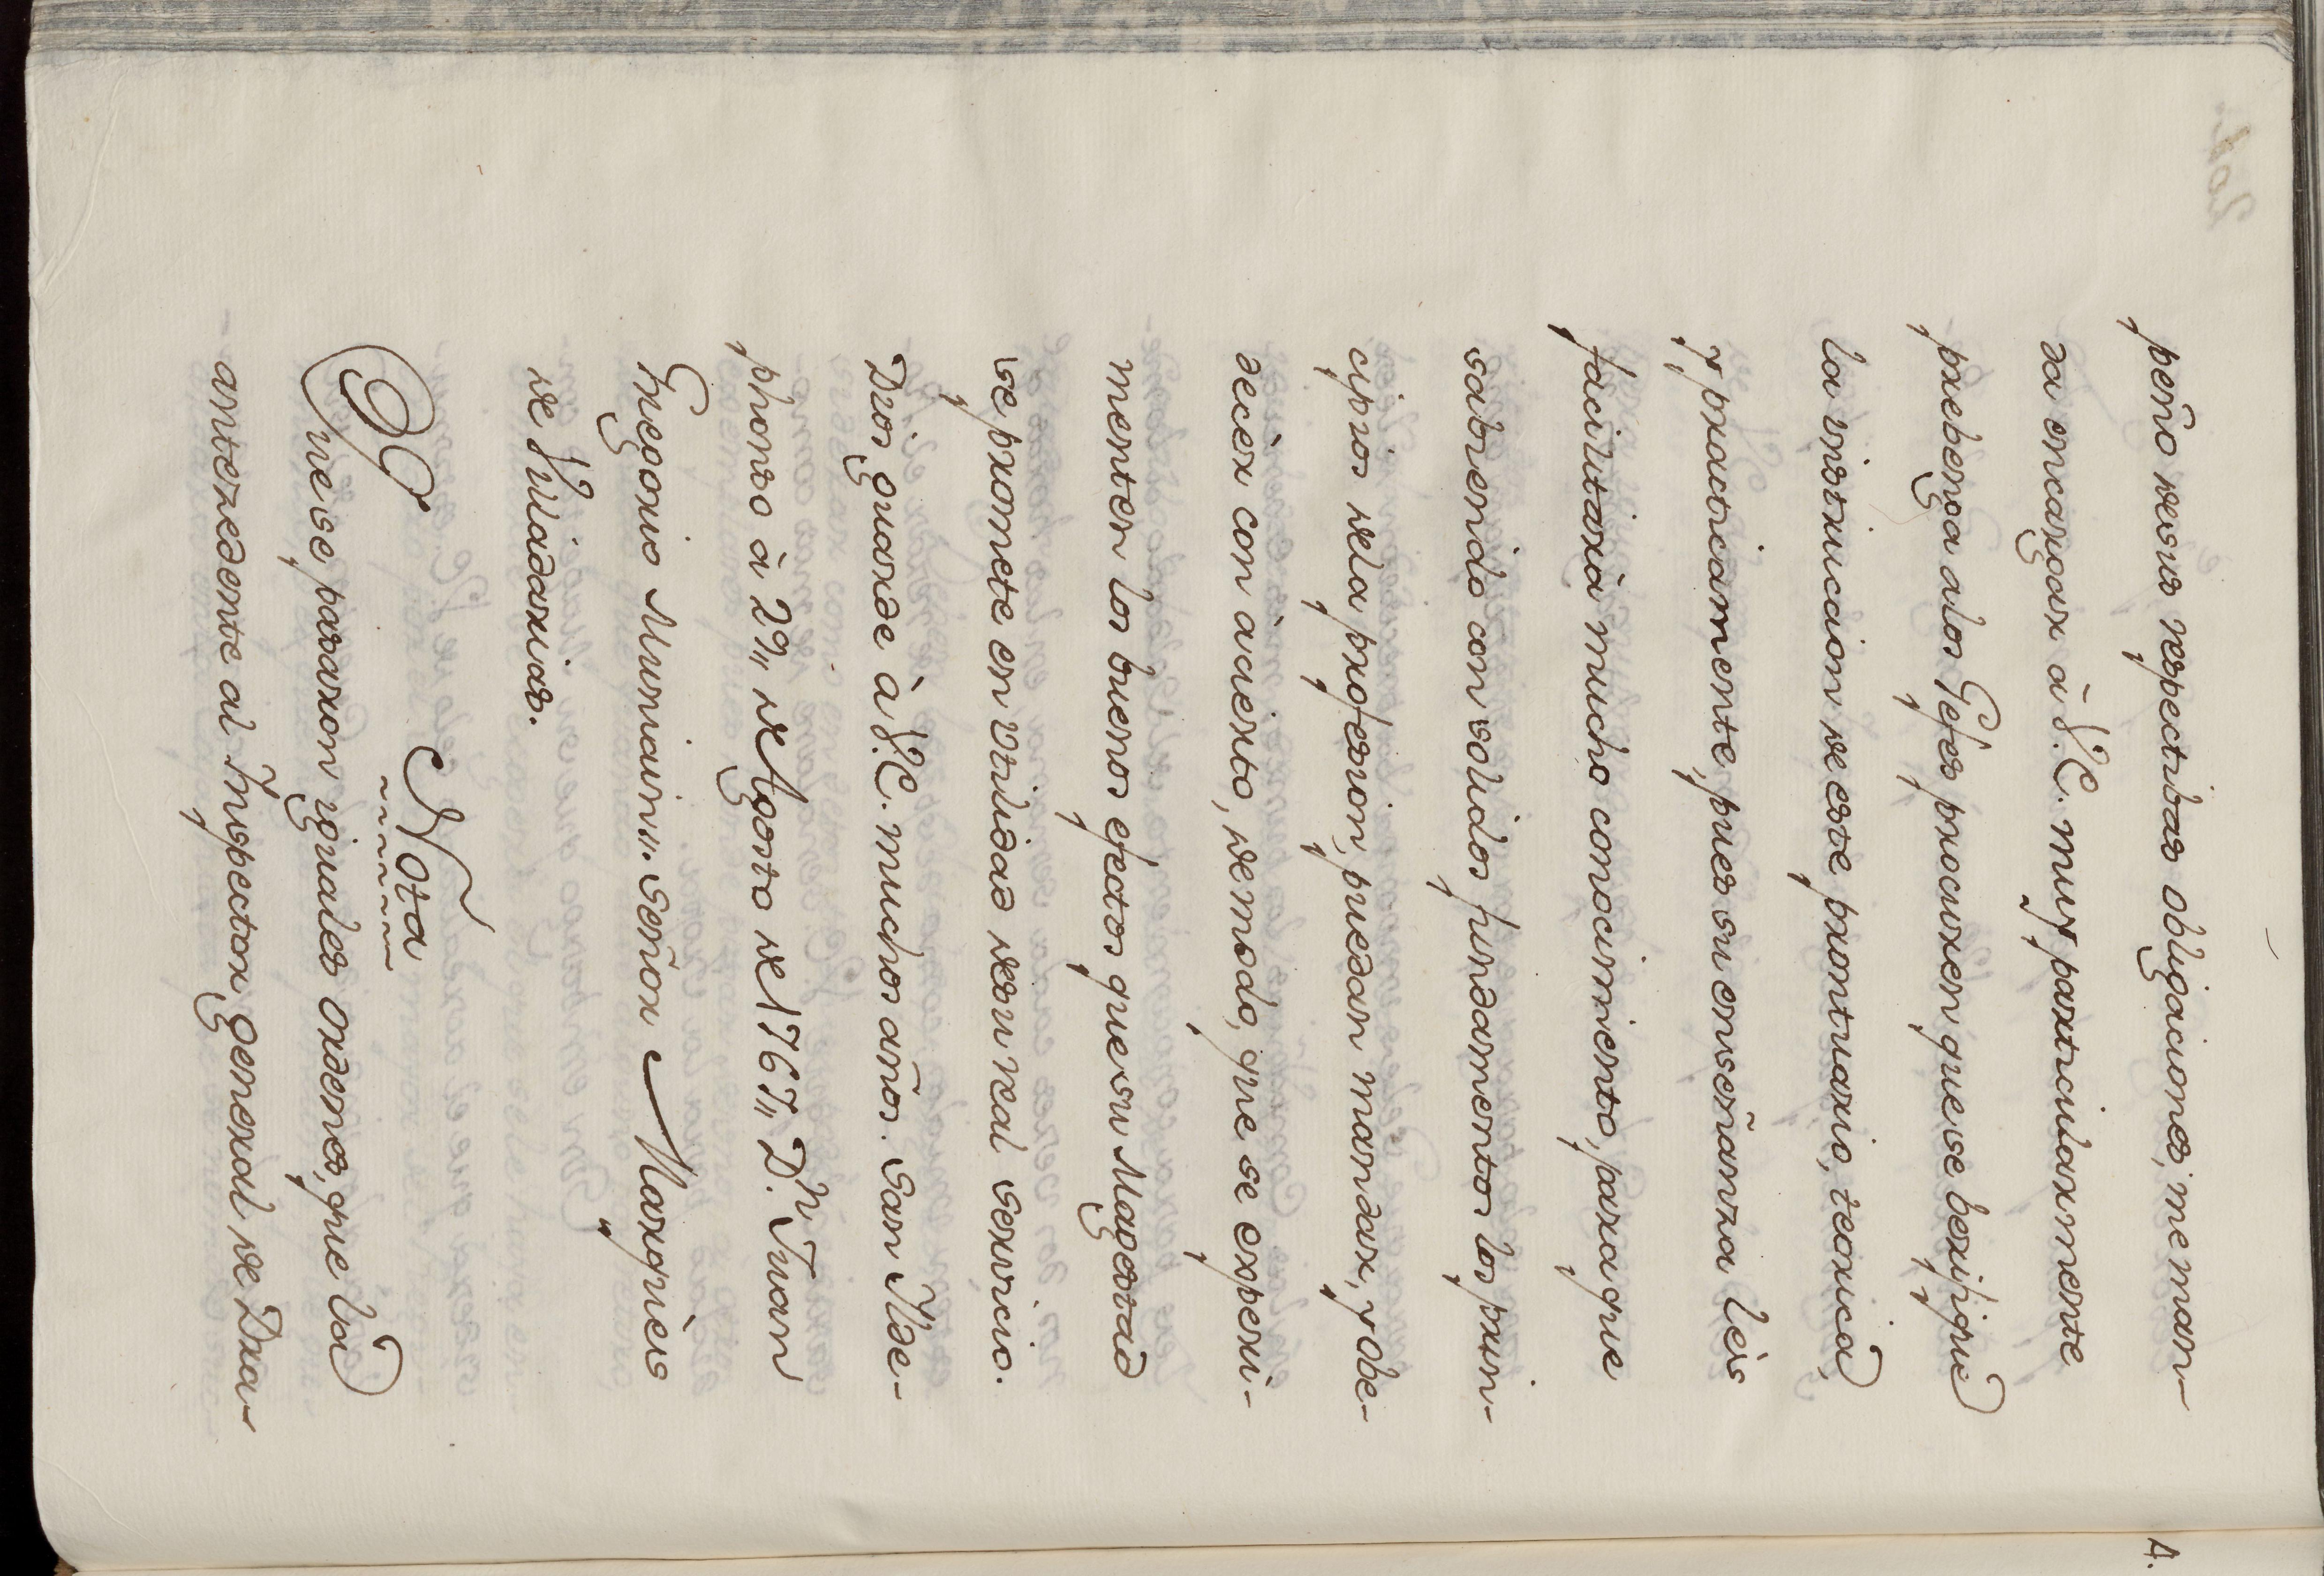 peño desus respectibas obligaciones, me man-
da encargar à V.E. muy particularmente
prebenga alos Gefes procuren que se berifique
la instruccion de este prontuario, teorica,
y practicamente, pues su enseñanza leis
facilitarà mucho conocimiento, para que
sabiendo con solidos fundamentos los prin-
cipios dela profesion, puedan mandar, y obe-
decer con àcierto, demodo, que se experi-
menten los buenos efectos que su Magestad
se promete en vtilidad desu real servicio.
Dios guarde à V.E. muchos años. San Ilde-
phonso à 29,, de Agosto de 1767,, D.n Juan
Gregorio Muniain,,. Señor Marquès
de Villadarias.
Nota
Que se pasaron iguales ordenes, que la
antezedente al Inspector general de Dra-
4.